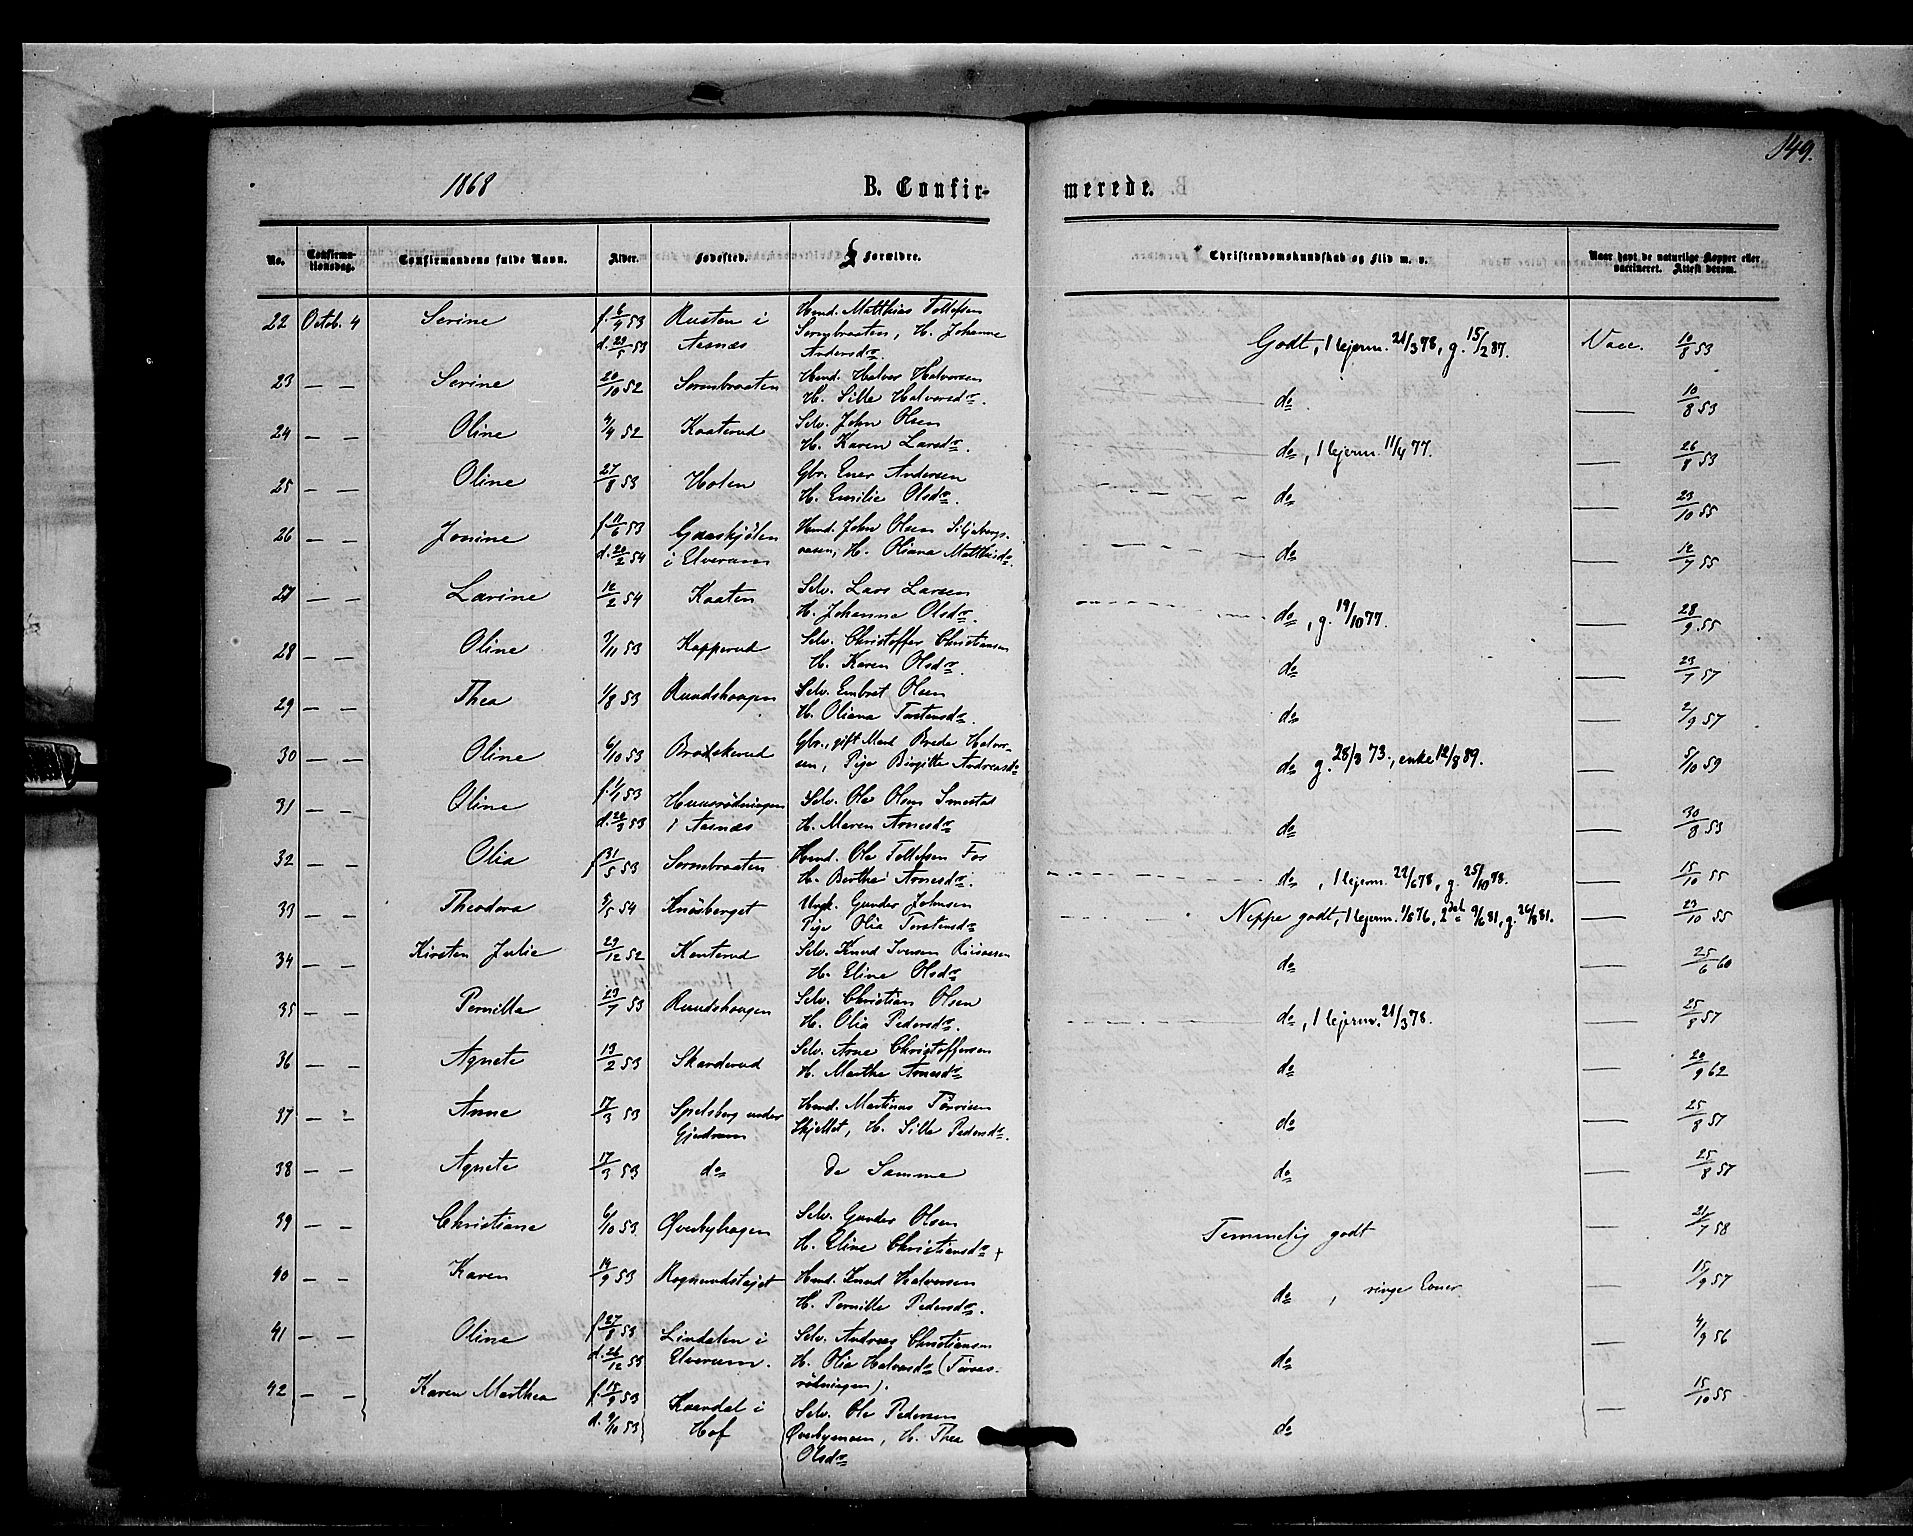 149.
1868
B. Confir-
merede.
No.
Confirma-
tionsdag.
Confirmandens fulde Navn.
Alder.
Fødested.
Forældre.
Christendomskundskab og Flid m. v.
Naar havt de naturlige Kopper eller
vaccineret. Attest derom.
22 Octob. 4 Serine f. 6/4 53 Rusten i Hmd. Matthias Tollefsen
d. 29/5 53 Aasnæs Sormbraaten, H. Johanne
Andersdr. Godt, 1 lejerm. 21/3 78, g. 15/2 87. Vacc. 10/8 53
23 — — Serine 20/10 52 Sormbraaten Hmd. Halvor Halvorsen
H. Sille Halvorsdr. do. — 10/8 53
24 — — Oline 4/4 52 Kaaterud Selv. John Olsen
H. Karen Larsdr. do, 1 lejerm. 11/4 77. — 26/8 53
25 — — Oline 27/8 53 Holen Gbr. Ener Andersen
H. Emilie Olsdr. do — 23/10 55
26 — — Jonine f. 11/6 53 Gaaskjølen Hmd. John Olsen Siljebergs-
d. 20/2 54 i Elverum aasen, H. Oliana Matthisdr. do — 12/7 55
27 — — Larine 12/2 54 Kaaten Selv. Lars Larsen
H. Johanne Olsdr. do, g. 19/10 77. — 28/9 55
28 — — Oline 7/11 53 Kopperud Selv. Christoffer Christiansen
H. Karen Olsdr. do — 23/7 57
29 — — Thea 1/8 53 Rundshaugen Selv. Embret Olsen
H. Oliana Torstensdr. do — 2/9 57
30 — — Oline 6/10 53 Braskerud Gbr., gift Mand Brede Halvor-
sen, Pige Birgitte Andreasdr. do g. 28/3 73, enke 12/8 89. — 5/10 59
31 — — Oline f. 1/1 53 Huusrødningen Selv. Ole Olsen Smestad
d. 20/3 53 i Aasnæs H. Maren Arnesdr. do — 30/8 53
32 — — Olia f 31/5 53 Sormbraaten Hmd. Ole Tollefsen Fos
H. Berthe Arnesdr. do, 1 lejerm. 22/6 78, g. 25/10 78. — 15/10 55
33 — — Theodora 9/5 54 Knosberget Ungk. Gunder Johnsen
Pige Olia Torstensdr. Neppe godt, 1 lejerm. 1/5 76, 2det 9/6 81, g. 26/8 81. — 23/10 55
34 — — Kirsten Julie 29/12 52 Konterud Selv. Knud Iversen Riisaasen
H. Eline Olsdr. do — 25/6 60
35 — — Pernille 23/7 53 Rundshaugen Selv. Christian Olsen
H. Olia Pedersdr. do, 1 lejerm. 21/3 78. — 25/8 57
36 — — Agnete 13/2 53 Skarderud Selv. Arne Christoffersen
H. Marthe Arnesdr. do — 20/9 62
37 — — Anne 17/3 53 Spelsberg under Hmd. Martinus Tørrisen
Gjedrum Skjellet, H. Sille Pedersdr. do — 25/8 57
38 — — Agnete 17/3 53 do De Samme do — 25/8 57
39 — — Christiane 6/10 53 Øverbyhagen Selv. Gunder Olsen
H. Eline Christiansdr. + Temmelig godt — 21/7 58
40 — — Karen 14/9 53 Rognerudstajet Hmd. Knud Halvorsen
H. Pernille Pedersdr. do, ringe Evner. — 15/9 57
41 — — Oline f. 27/8 53 Lindalen i Selv. Andreas Christiansen
d. 26/12 53 Elverum. H. Olia Halvorsdr. (Tøraas-
rødningen). do — 4/9 56
42 — — Karen Marthea f. 15/9 53 Kaardal i Selv. Ole Pedersen
d. 9/10 53 Hof Øverbymoen, H. Thea
Olsdr. do — 15/10 55